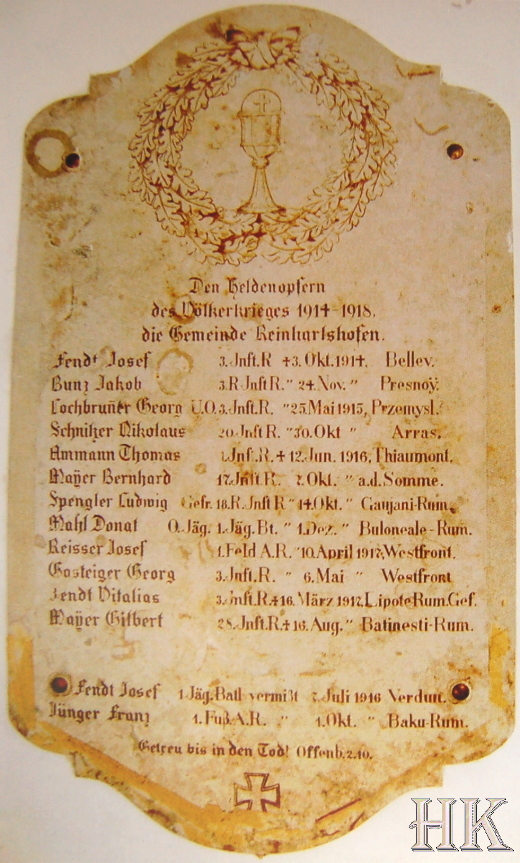 Den Heldenopfern
des Völkerkrieges 1914-1918.
die Gemeinde Reinhartshofen.
Fendt Josef 3. Inft.R. † 3. Okt. 1914. Bellev.
Bunz Jakob 3. R. Inft R. " 24. Nov. " Presnoy.
Lochbrunner Georg U.O. 3. Inft.R. " 25. Mai 1915, Przemysl.
Schnitzer Nikolaus 20. Inft R. " 30. Okt " Arras.
Ammann Thomas 1. Inft R. † 12. Jun. 1916, Thiaumont.
Mayer Bernhard 17. Inft R. " 7. Okt. " a.d. Somme.
Spengler Ludwig Gefr. 18. R. Inft R " 14. Okt. " Gaujani-Rum.
Mahl Donat O. Jäg. 1. Jäg. Bt. " 1. Dez. " Buloneale-Rum.
Reisser Josef 1. Feld A.R. " 10. April 1917, Westfront.
Gosteiger Georg 3. Inft.R. " 6. Mai " Westfront
Fendt Vitalias 3. Inft.R. † 16. März 1917. Lipote Rum. Gef.
Mayer Gilbert 28. Inft.R. † 16. Aug. " Batinesti-Rum.
Fendt Josef 1 Jäg. Batl vermißt 7. Juli 1916 Verdun.
Jünger Franz 1. Fuß. A.R. " 1. Okt. " Baku-Rum.
Getreu bis in den Tod! Offenb. 2.10.
HK